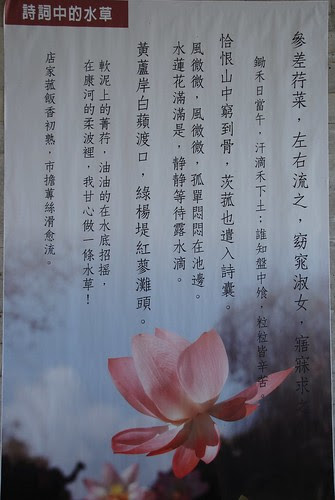 詩詞中的水草
參差荇菜，左右流之，窈窕淑女，寤寐求
鋤禾日當午，汗滴禾下土；誰知盤中飧，粒粒皆辛苦。
恰恨山中窮到骨，茨菰也遣入詩囊。
風微微，風微微，孤單悶悶在池邊。
水蓮花滿滿是，靜靜等待露水滴。
黃蘆岸白蘋渡口，綠楊堤紅蓼灘頭。
軟泥上的菁荇，油油的在水底招搖，
在康河的柔波裡，我甘心做一條水草！
店家菰飯香初熟，市擔蓴絲滑愈流。